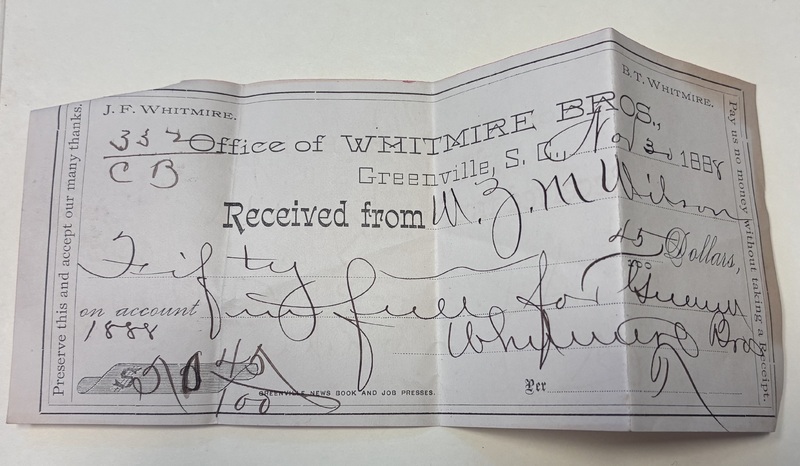 J. F. WHITMIRE.
B. T. WHITMIRE.
Office of WHITMIRE BROS.,
C B
Greenville, S. C., Nov 30 1888
Received from W. Z. M Wilson
Fifty 45/100 Dollars,
on account in full for
1888
Whitmire Bros
$50 45/100
Per
GREENVILLE NEWS BOOK AND JOB PRESSES.
Preserve this and accept our many thanks.
Pay us no money without taking a Receipt.